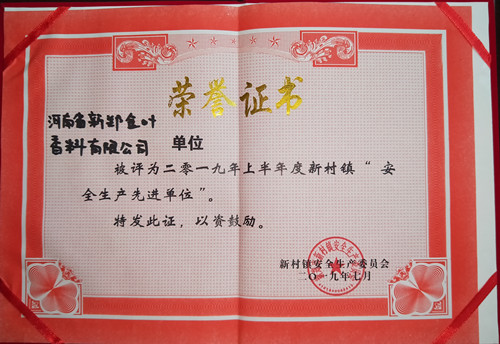 荣誉证书
河南省新郑金叶
香料有限公司 单位
被评为二零一九年上半年度新村镇“安
全生产先进单位”。
特发此证，以资鼓励。
新村镇安全生产委员会
二〇一九年七月